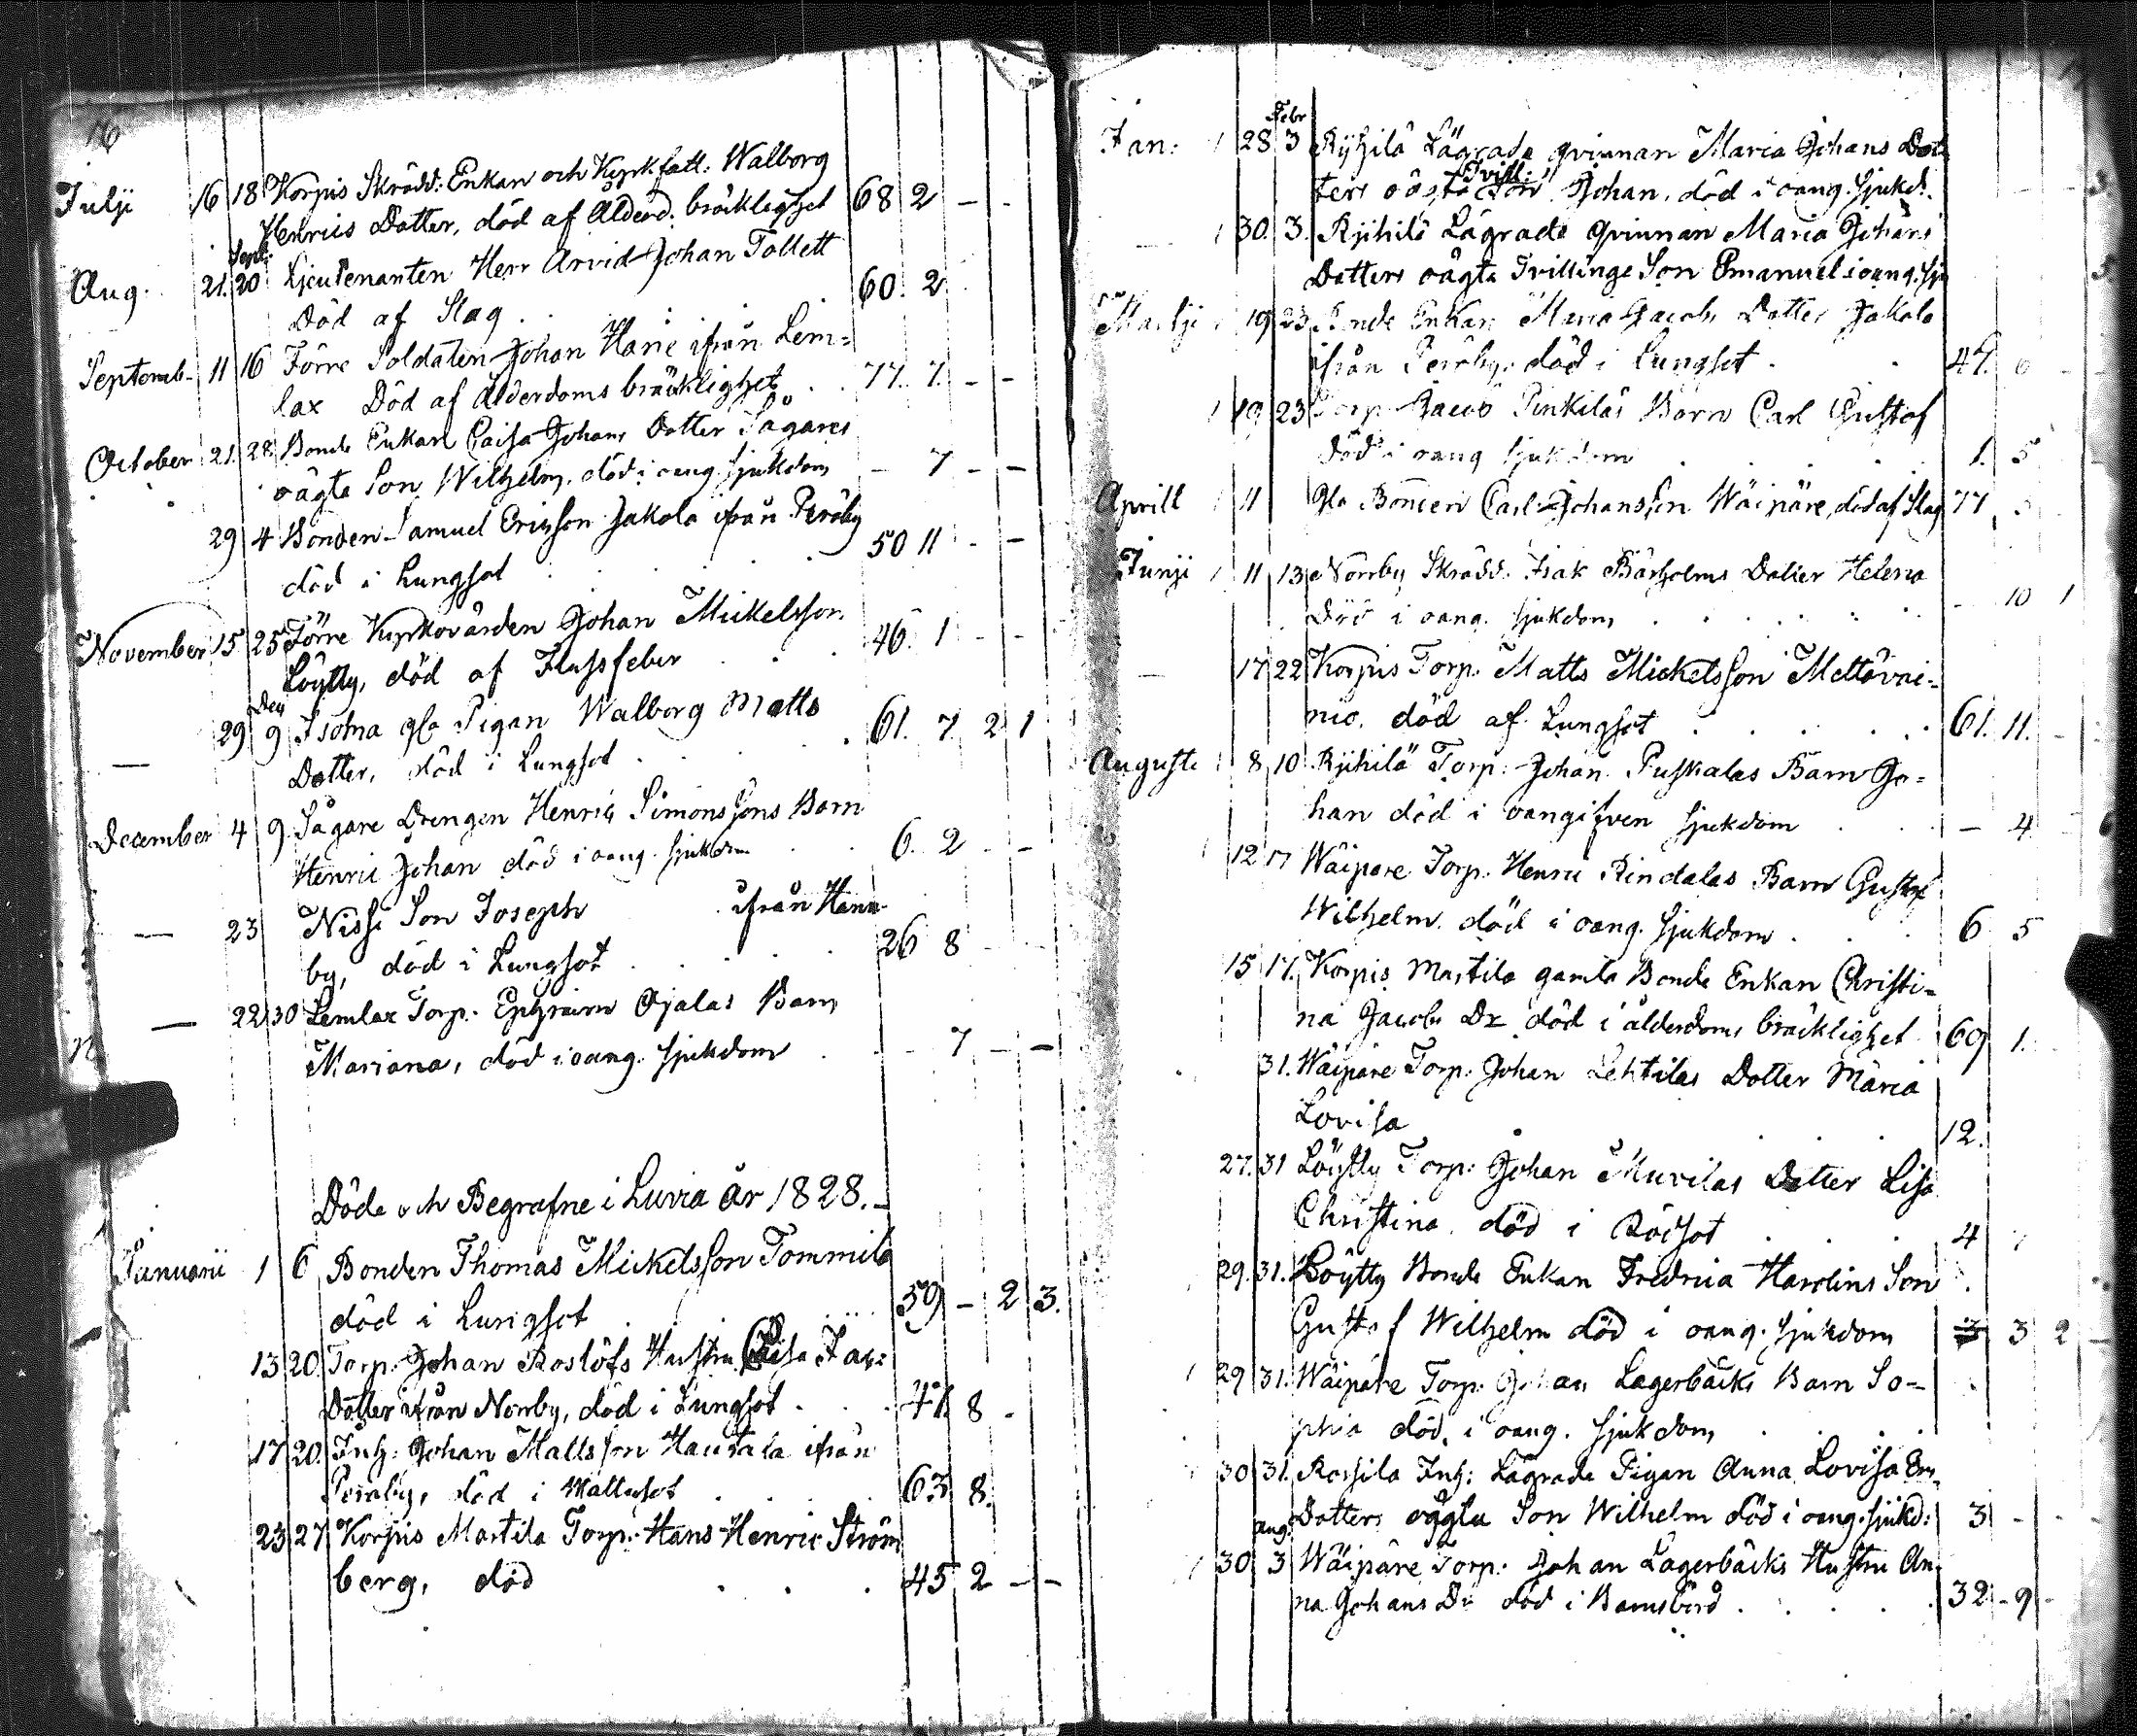 16
Julji 16 18 Korpis Skrädd: Enkan och Kyrkfatt: Walborg
Henrics Dotter, död af Ålderd. bräklighet 68 2 - -
Sept:
Aug. 21. 20 Lieutenanten Herr Arvid Johan Tollett
Död af Slag . . . 60. 2
Septemb- 11 16 Förre Soldaten Johan Hane ifrån Lem=
lax Död af Ålderdoms bräcklighet . . 77. 7. - -
October 21. 28 Bonde Enkan Caisa Johans Dotter Sågares
oägta Son Wilhelm, död i oang. sjukdom - 7 - -
29 4 Bonden Samuel Ericsson Jakola ifrån Peräby
död i Lungsot . . . 50 11 - -
November 15 25 Förre Kyrkovärden Johan Mickelsson
Löytty, död af Flussfeber . . . 46. 1 - -
Dec
— 29 9 Isotna gla Pigan Walborg Matts
Dotter, död i Lungsot . . 61. 7. 2 1
December 4 9. Sågare Drengen Henric Simonssons Barn
Henric Johan död i oang. sjukdom . . 6. 2 - -
— 23 Nissi Son Joseph ifrån Hann-
by, död i Lungsot . . . 26 8
— 22 30 Lemlax Torp. Ephraim Ojalas Barn
Mariana, död i oang. sjukdom . - 7 - -
Döde och Begrafne i Luvia år 1828. -
Januarii 1 6 Bonden Thomas Mickelsson Tommila
död i Lungsot 59 - 2 3.
13 20. Torp. Johan Roslöfs Hustru Caisa Jac:
Dotter ifrån Norrby, död i Lungsot . . . 47. 8 -
17 20. Inh: Johan Mattsson Hautala ifrån
Peräby, död i Wattusot . . . 63 8.
23 27 Korpis Martila Torp. Hans Henric Ström
berg, död . . . 45 2 - -
Febr
Jan: 28 3 Ryhilä Lägrade qvinnan Maria Johans Dot-
Tvill:
ters oägta Son Johan, död i oang. sjukd.
— 30. 3. Ryhilä Lägrade qvinnan Maria Johans
Dotters oägta Tvillinge Son Emanuel i oang. sju
Martji 19 23 Bonde Enkan Maria Jacobs Dotter Jakola
ifrån Peräby, död i Lungsot . . 47.
19. 23 Torp. Jacob Pinkiläs Barn Carl Gustaf
död i oang sjukdom . . . 1. 5
Aprill 11 Gla Bonden Carl Johansson Wäipäre, död af Slag 77
Junji 11 13 Norrby Skrädd. Isak Bärholms Dotter Helena
Död i oang. sjukdom . . . - 10 1
— 17 22 Korpis Torp. Matts Mickelsson Mettävai-
nio. död af Lungsot . . . 61. 11. -
Augusti 8 10 Ryihilä Torp: Johan Puskalas Barn Jo=
han död i oangifven sjukdom . . - 4
12 17 Wäipäre Torp. Henric Rindalas Barn Gustaf
Wilhelm. död i oang. sjukdom . . . 6 5
15 17. Korpis Martila gamla Bonde Enkan Christi-
na Jacobs Dr död i ålderdoms bräcklighet 69 1.
31. Wäipäre Torp: Johan Lehtilas Dotter Maria
Lovisa . . . 12.
27. 31 Löytty Torp: Johan Muvilas Dotter Lisa
Christina. död i Rödsot . . . 4 7
29. 31. Löytty Bonde Enkan Fredrica Harolins Son
Gustaf Wilhelm död i oang. sjukdom 3 2 -
29 31. Wäipäre Torp. Johan Lagerbäcks Barn So-
phia död, i oang. sjukdom . . .
30 31. Rossila Inh: Lägrade Pigan Anna Lovisa Er-
Dotters oägta Son Wilhelm död i oang. sjukd: 3 - - -
aug.
30 3 Wäipäre Torp: Johan Lagerbäcks Hustru An-
na Johans Dr död i Barnsbörd . . . 32 - 9 -